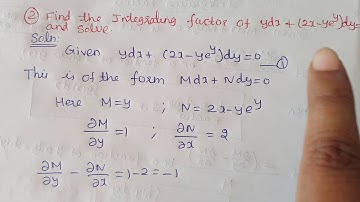 ② Find the Integrating factor of ydx + (2x-ye^y)dy=
and solve.
Soln:
Given ydx + (2x-ye^y)dy=0 —①
This is of the form Mdx + Ndy=0
Here M=y ; N = 2x-ye^y
∂M/∂y = 1 ; ∂N/∂x = 2
∂M/∂y - ∂N/∂x = 1-2 = -1